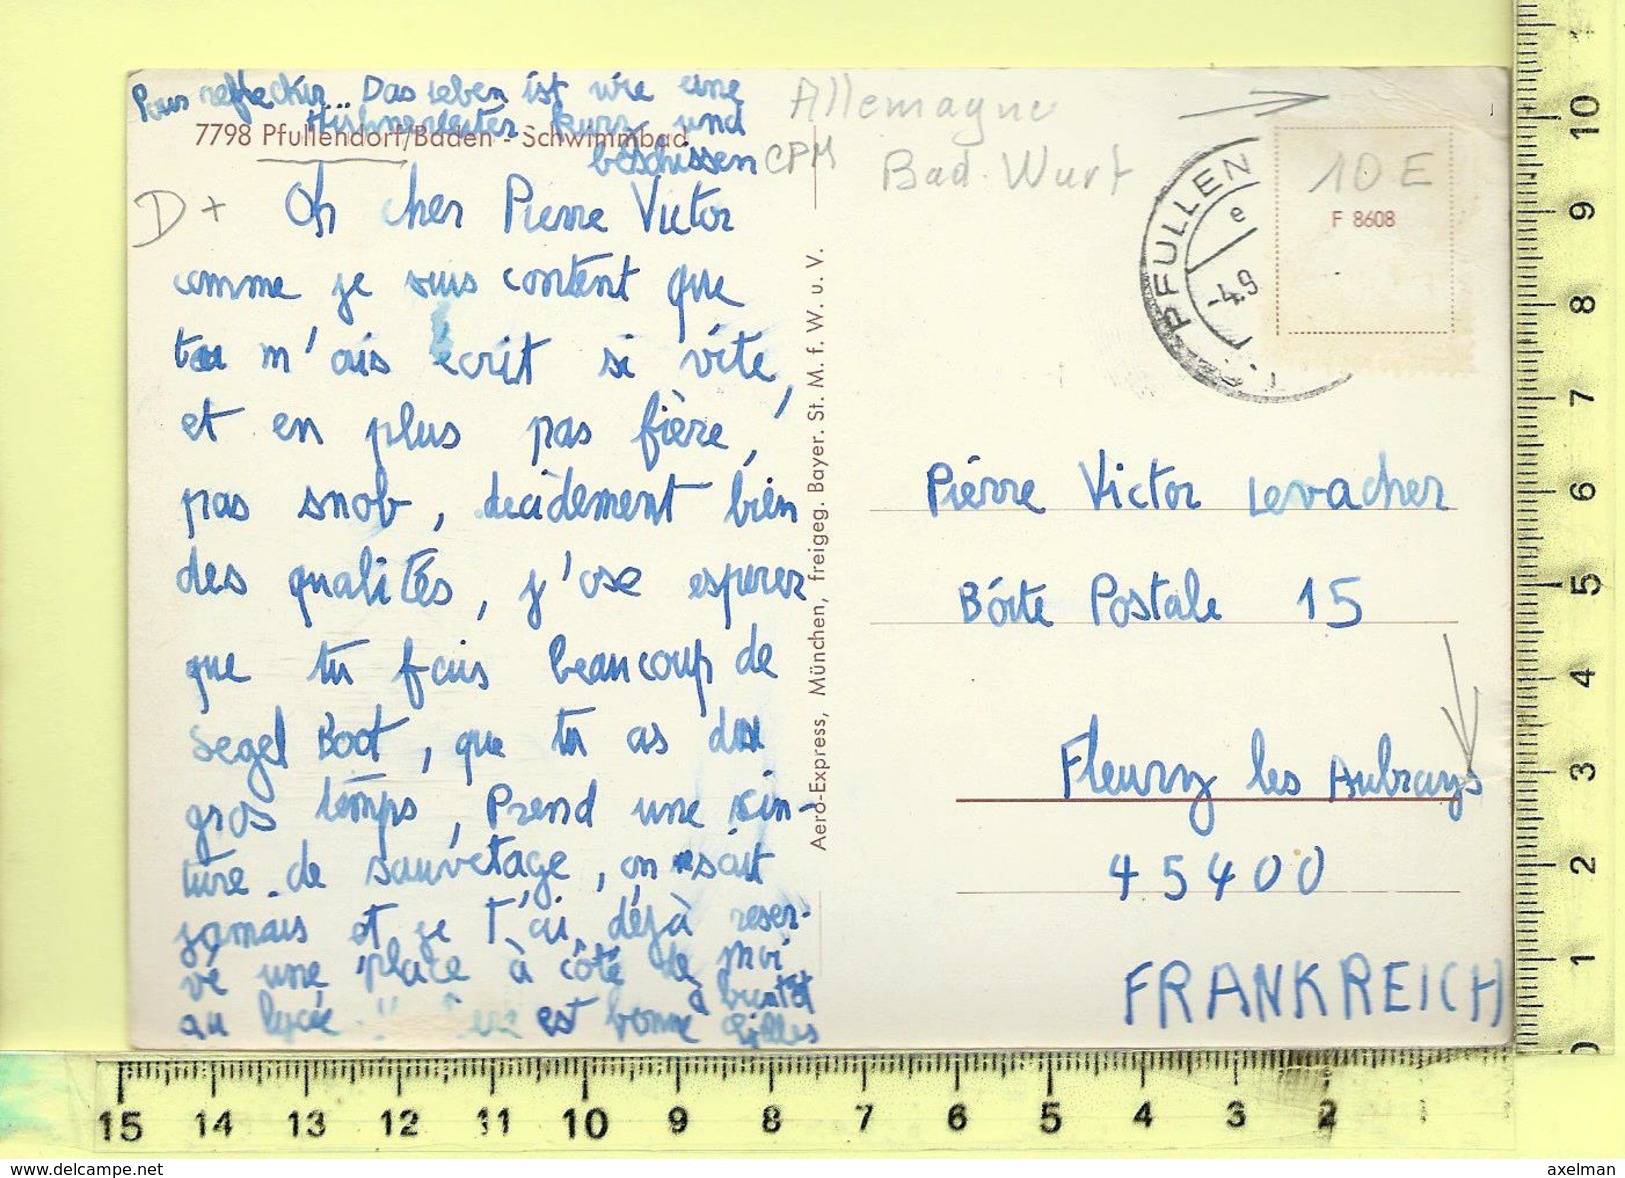 Pour reflechir... Das Leben ist wie eine
Hühnerleiter kurz und
beschissen
7798 Pfullendorf/Baden - Schwimmbad
Allemagne
CPM Bad. Wurt
D +
Oh cher Pierre Victor
comme je suis content que
tu m'ais écrit si vite,
et en plus pas fière,
pas snob, decidement bien
des qualités, j'ose esperer
que tu fais beaucoup de
Segel Boot, que tu as du
gros temps, Prend une cin-
ture de sauvetage, on sait
jamais et je t'ai déjà reser-
vé une place à côté de moi
au lycée !! est bonne
à bientôt
Gilles
Aero-Express, München, freigeg. Bayer. St. M. f. W. u. V.
PFULLEN
e
-4.9
10 E
F 8608
Pierre Victor Levacher
Boîte Postale 15
Fleury les Aubrays
45400
FRANKREICH
10
9
8
7
6
5
4
3
2
1
15 14 13 12 11 10 9 8 7 6 5 4 3 2
www.delcampe.net
axelman